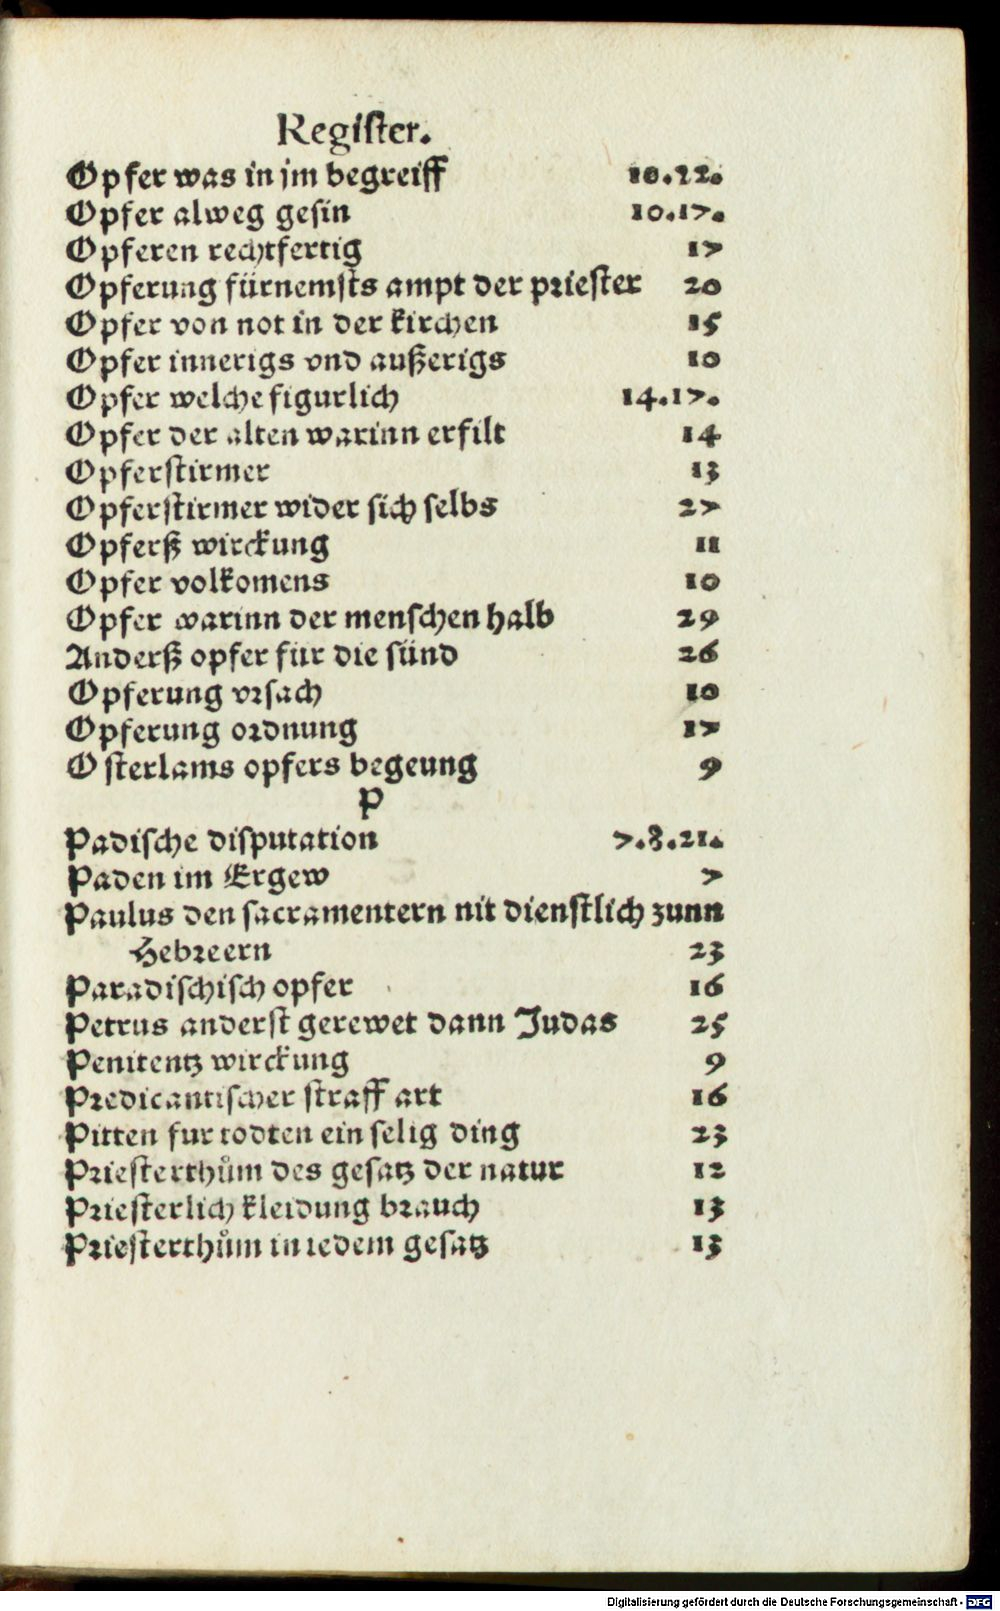 Regiſter.
Opfer was in jm begreiff 10.22.
Opfer alweg geſin 10.17.
Opferen rechtfertig 17
Opferung fürnemſts ampt der prieſter 20
Opfer von not in der kirchen 15
Opfer innerigs vnd außerigs 10
Opfer welche figurlich 14.17.
Opfer der alten warinn erfilt 14
Opferſtirmer 13
Opferſtirmer wider ſich ſelbs 27
Opferß wirckung 11
Opfer volkomens 10
Opfer warinn der menſchen halb 29
Anderß opfer für die ſünd 26
Opferung vrſach 10
Opferung ordnung 17
Oſterlams opfers begeung 9
P
Padiſche diſputation 7.8.21.
Paden im Ergew 7
Paulus den ſacramentern nit dienſtlich zunn
Hebreern 23
Paradiſchiſch opfer 16
Petrus anderſt gerewet dann Judas 25
Penitentz wirckung 9
Predicantiſcher ſtraff art 16
Pitten fur todten ein ſelig ding 23
Prieſterthům des geſatz der natur 12
Prieſterlich kleidung brauch 13
Prieſterthům in iedem geſatz 13
Digitalisierung gefördert durch die Deutsche Forschungsgemeinschaft - DFG